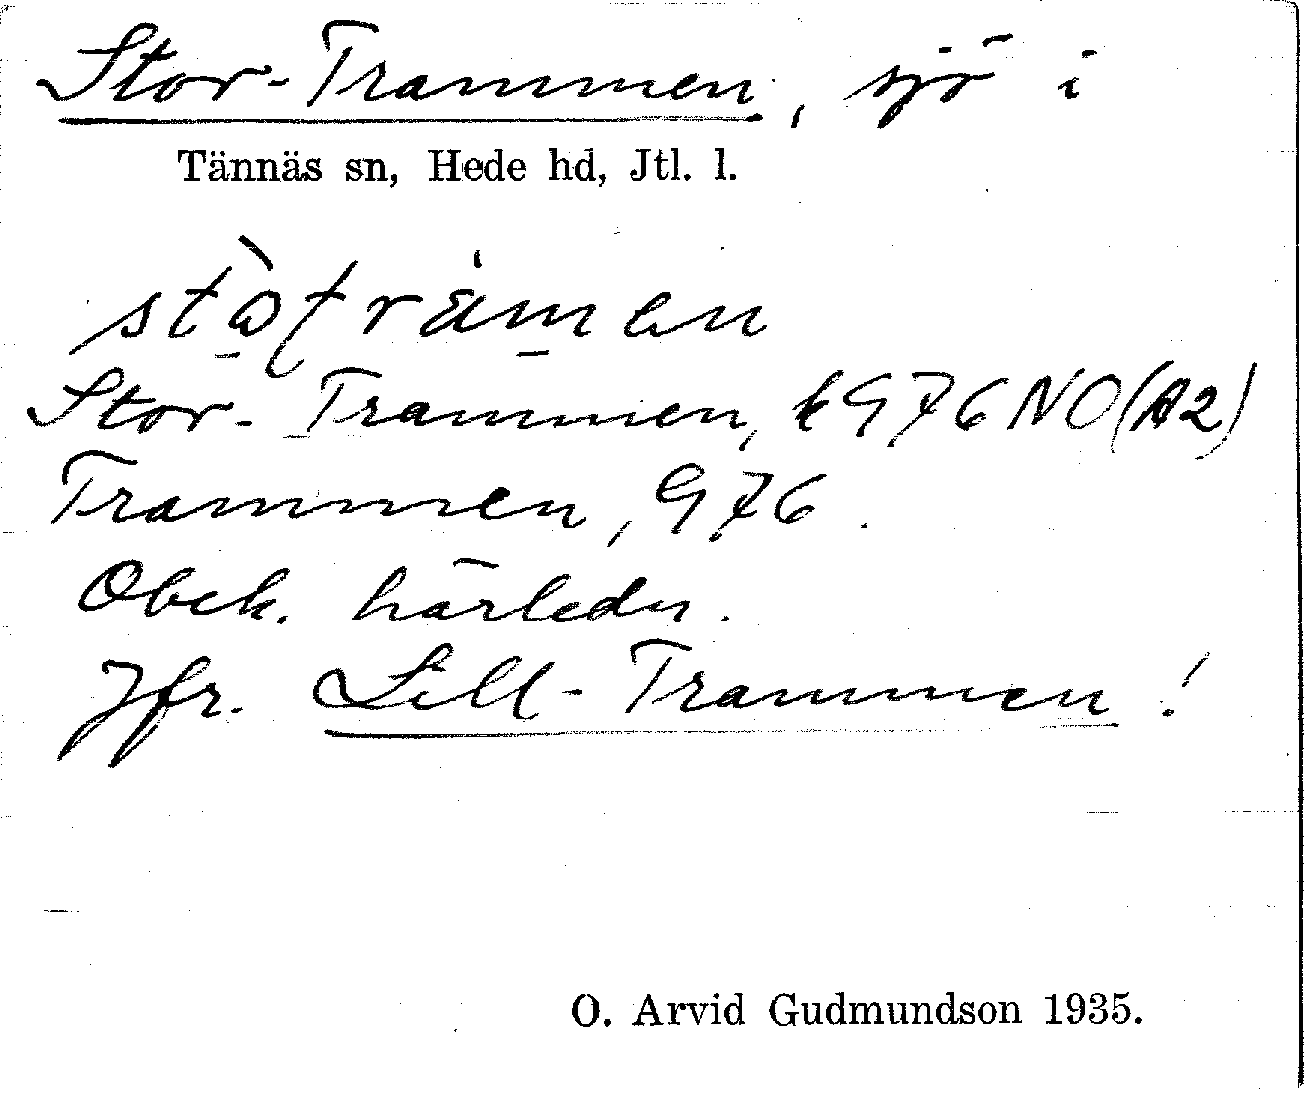 Stor-Trammen, sjö i
Tännäs sn, Hede hd, Jtl. l.
Stor-Trammen, k G 76 NO (A2)
Trammen, G 76.
Obek. härledn.
Jfr. Lill-Trammen!
O. Arvid Gudmundson 1935.